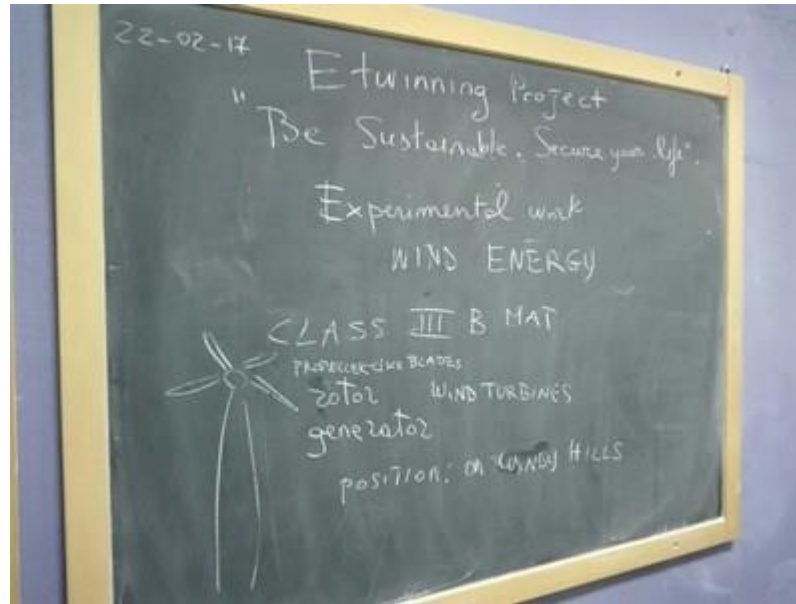 22-02-17
Etwinning Project
"Be Sustainable. Secure your life".
Experimental work
WIND ENERGY
CLASS III B MAT
PROPELLER-LIKE BLADES
rotor WIND TURBINES
generator
POSITION: ON WINDY HILLS